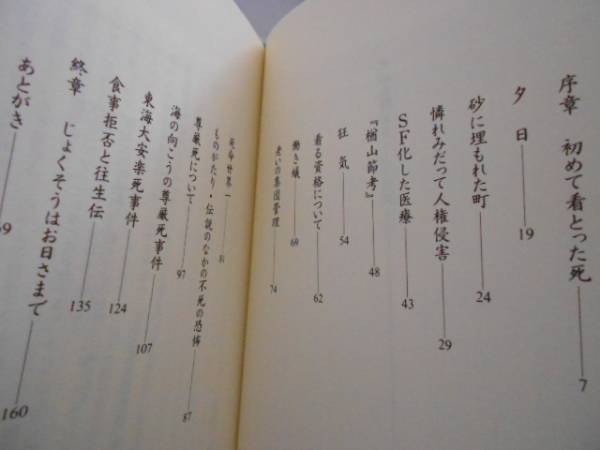 序章 初めて看とった死 7
夕日 19
砂に埋もれた町 24
憐れみだって人権侵害 29
SF化した医療 43
『楢山節考』 48
狂気 54
看る資格について 62
働き蟻 69
老いの集団管理 74
延命世界一 81
ものがたり・伝説のなかの不死の恐怖 87
尊厳死について 97
海の向こうの尊厳死事件 107
東海大安楽死事件 124
食事拒否と往生伝 135
終章 じょくそうはお日さまで 160
あとがき 69